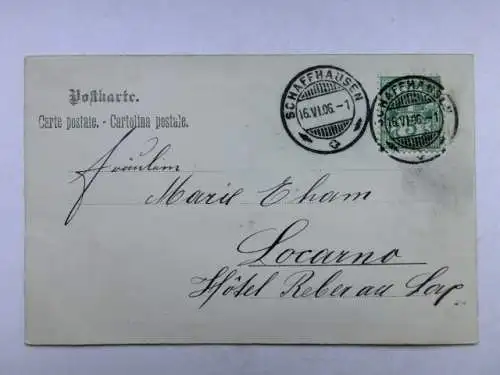 Postkarte.
Carte postale. - Cartolina postale.
SCHAFFHAUSEN
16.VI.06.-1
SCHAFFHAUSEN
16.VI.06.-1
Fräulein
Marie Eham
Locarno
Hôtel Reber au Lac